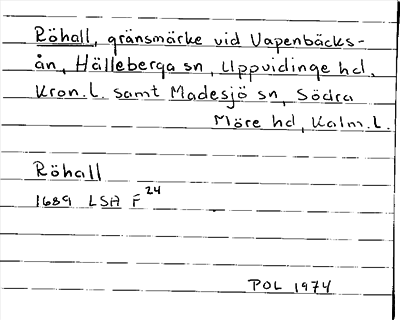 Röhall, gränsmärke vid Vapenbäcks-
ån, Hälleberga sn, Uppvidinge hd,
Kron.l. samt Madesjö sn, Södra
Möre hd, Kalm.l.
Röhall
1689 LSA F24
POL 1974